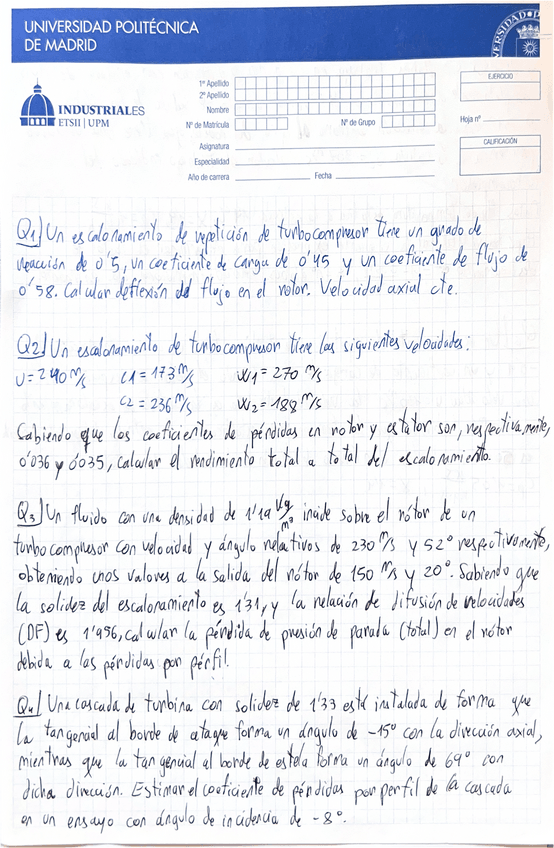 UNIVERSIDAD POLITÉCNICA
DE MADRID
INDUSTRIALES
ETSII | UPM
1º Apellido
2º Apellido
Nombre
Nº de Matrícula
Nº de Grupo
Asignatura
Especialidad
Año de carrera
Fecha
EJERCICIO
Hoja nº
CALIFICACIÓN
Q1) Un escalonamiento de repetición de turbocompresor tiene un grado de
reacción de 0'5, un coeficiente de carga de 0'45 y un coeficiente de flujo de
0'58. Calcular deflexión del flujo en el rotor. Velocidad axial cte.
Q2) Un escalonamiento de turbocompresor tiene las siguientes velocidades:
U=240 m/s C1=173 m/s W1=270 m/s
C2=236 m/s W2=188 m/s
Sabiendo que los coeficientes de pérdidas en rotor y estator son, respectivamente,
0'036 y 0'035, calcular el rendimiento total a total del escalonamiento.
Q3) Un fluido con una densidad de 1'19 kg/m³ incide sobre el rótor de un
turbocompresor con velocidad y ángulo relativos de 230 m/s y 52º respectivamente,
obteniendo unos valores a la salida del rótor de 150 m/s y 20º. Sabiendo que
la solidez del escalonamiento es 1'31, y la relación de difusión de velocidades
(DF) es 1'956, calcular la pérdida de presión de parada (total) en el rótor
debida a las pérdidas por perfil.
Q4) Una cascada de turbina con solidez de 1'33 está instalada de forma que
la tangencial al borde de ataque forma un ángulo de -15º con la dirección axial,
mientras que la tangencial al borde de estela forma un ángulo de 69º con
dicha dirección. Estimar el coeficiente de pérdidas por perfil de la cascada
en un ensayo con ángulo de incidencia de -8º.